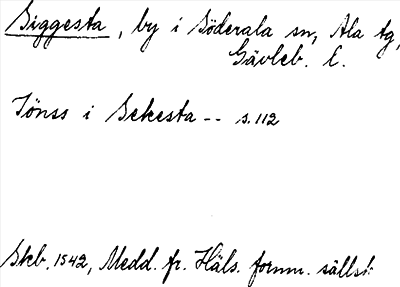 Siggesta, by i Söderala sn, Ala tg,
Gävleb. l.
Jönss i Sekesta -- s. 112
Skb. 1542, Medd. fr. Häls. fornm. sällsk.